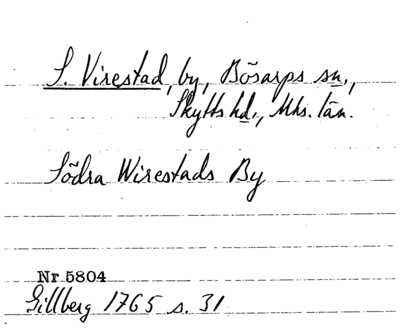 S. Virestad, by, Bösarps sn.,
Skytts hd., Mhs. län.
Södra Wirestads By
Nr 5804
Gillberg 1765 s. 31